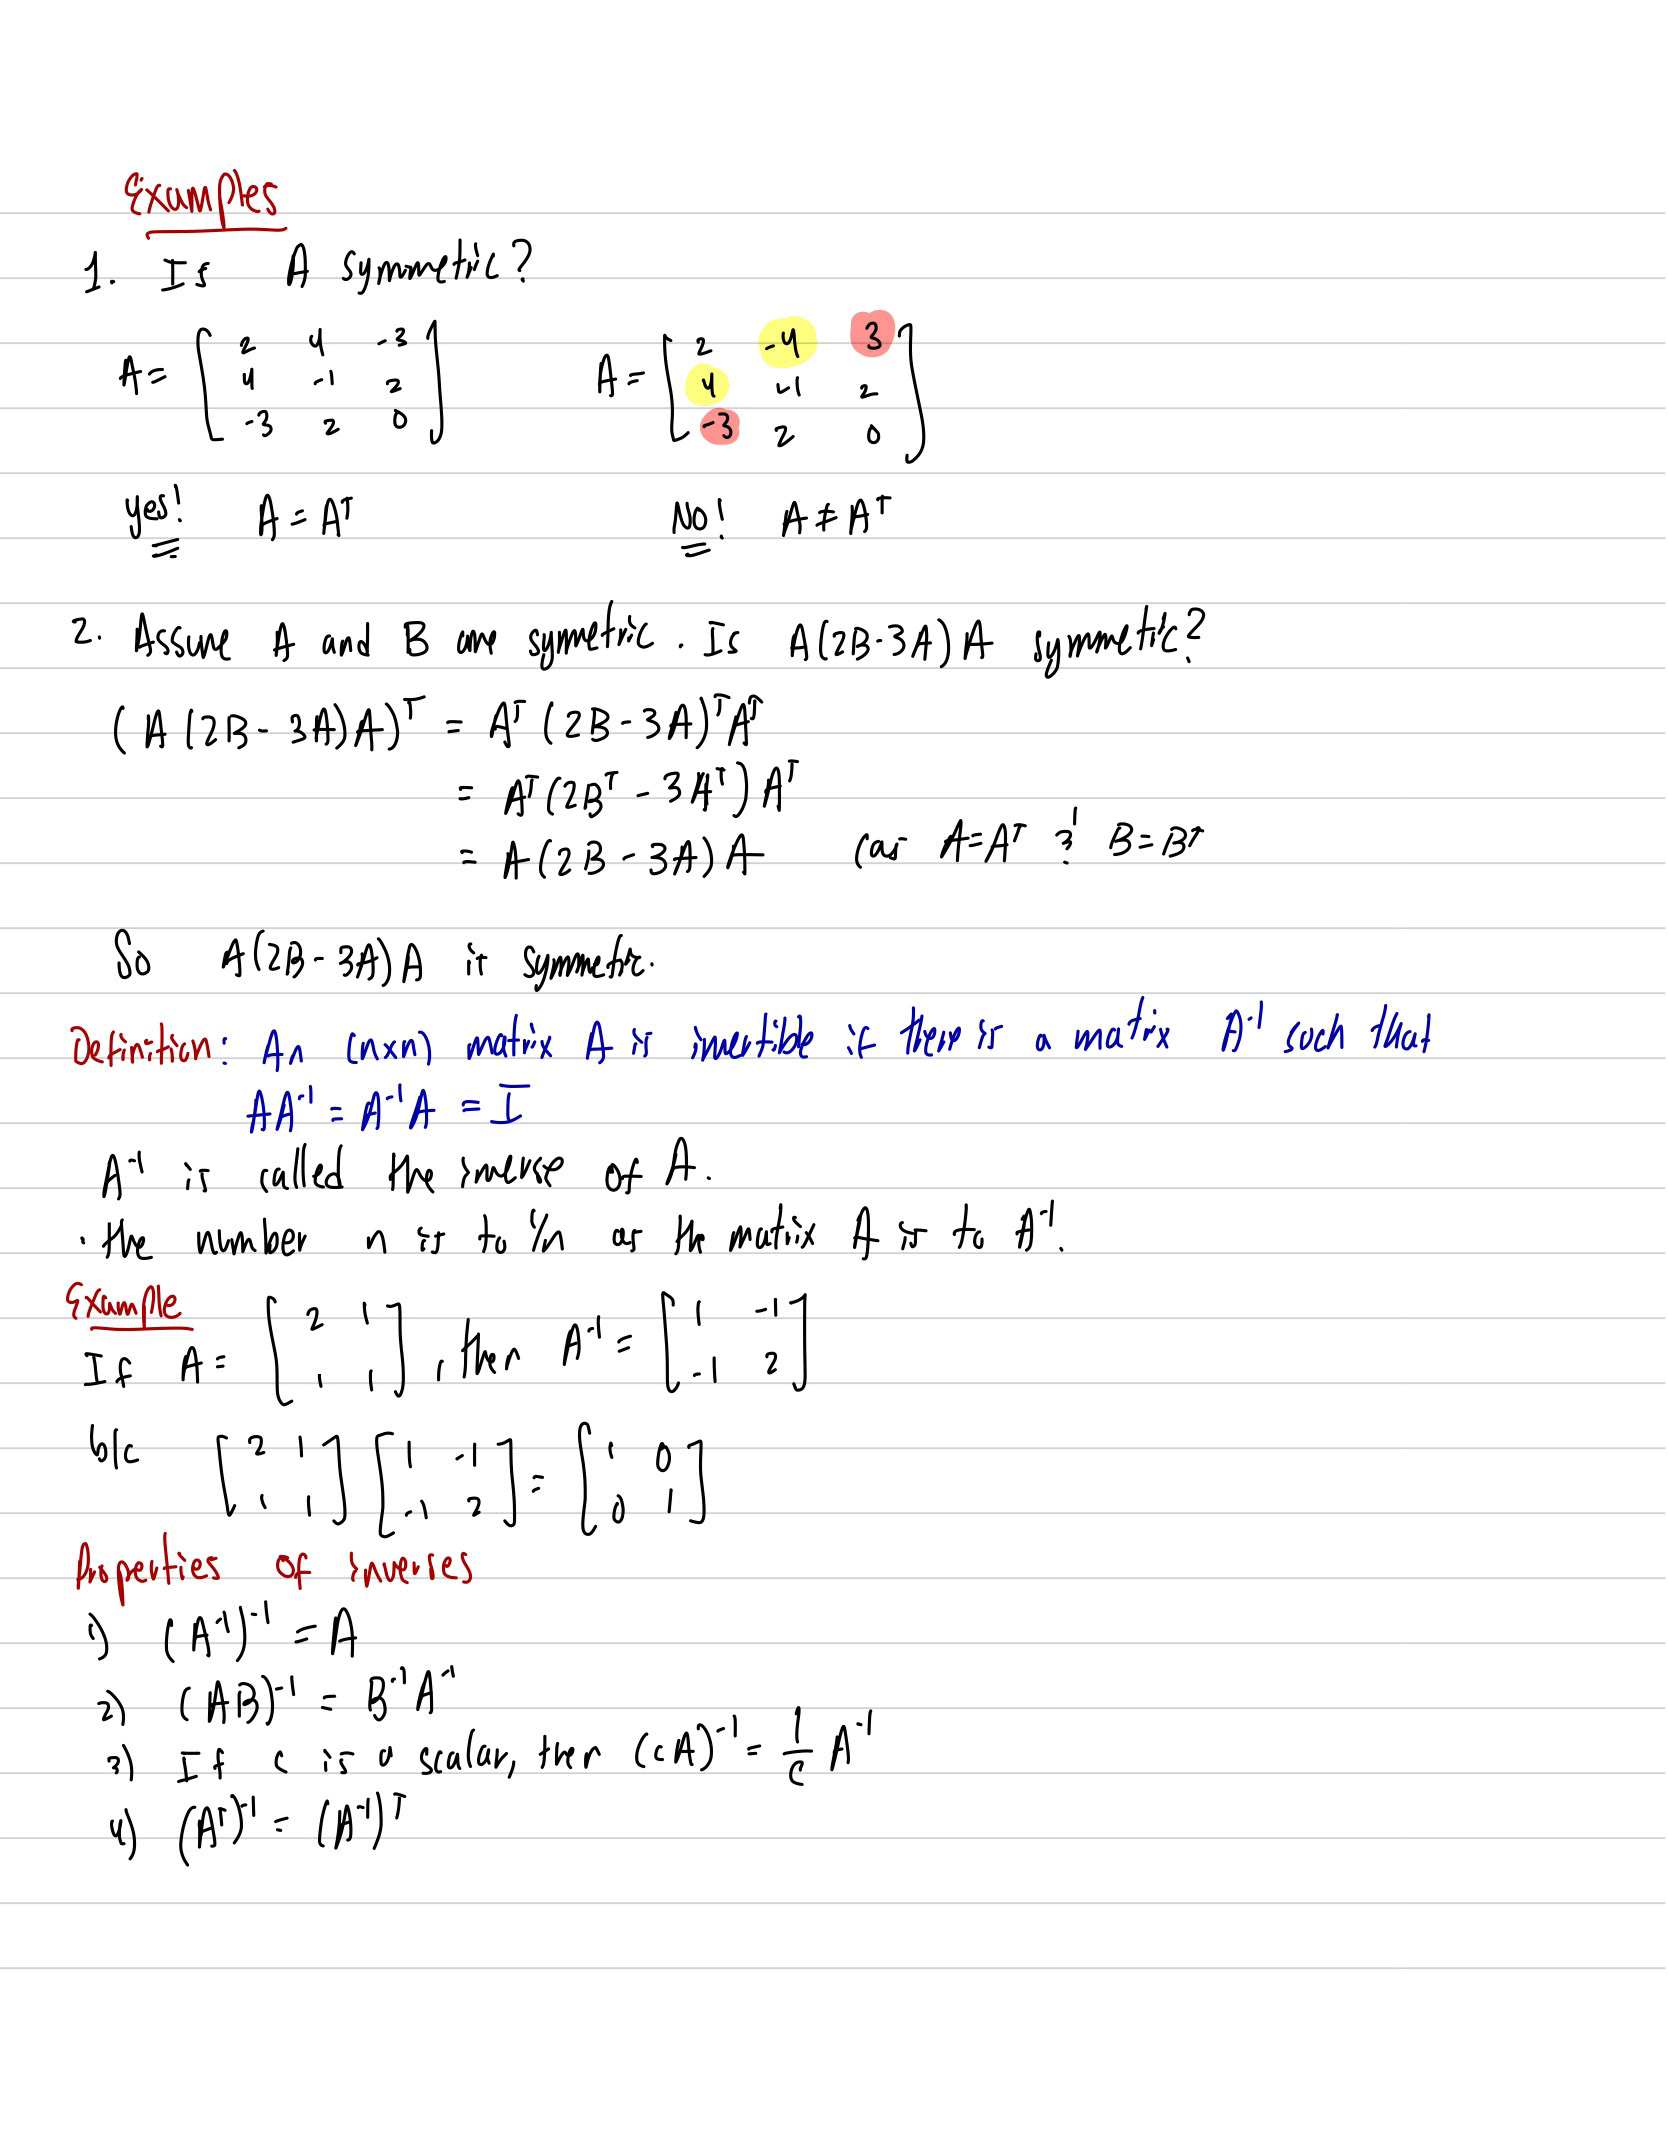 Examples
1. Is A symmetric?
A = [ 2 4 -3 A = [ 2 -4 3
4 -1 2 4 -1 2
-3 2 0 ] -3 2 0 ]
yes! A = Aᵀ No! A ≠ Aᵀ
2. Assume A and B are symetric. Is A(2B-3A)A symmetric?
(A(2B-3A)A)ᵀ = Aᵀ(2B-3A)ᵀAᵀ
= Aᵀ(2Bᵀ-3Aᵀ)Aᵀ
= A(2B-3A)A (as A=Aᵀ & B=Bᵀ
So A(2B-3A)A is symmetric.
Definition: An (nxn) matrix A is invertible if there is a matrix A⁻¹ such that
AA⁻¹ = A⁻¹A = I
A⁻¹ is called the inverse of A.
· the number n is to 1/n as the matrix A is to A⁻¹.
Example
If A = [ 2 1 , then A⁻¹ = [ 1 -1
1 1 ] -1 2 ]
b/c [ 2 1 [ 1 -1 = [ 1 0
1 1 ] -1 2 ] 0 1 ]
Properties of inverses
1) (A⁻¹)⁻¹ = A
2) (AB)⁻¹ = B⁻¹A⁻¹
3) If c is a scalar, then (cA)⁻¹ = 1/c A⁻¹
4) (Aᵀ)⁻¹ = (A⁻¹)ᵀ